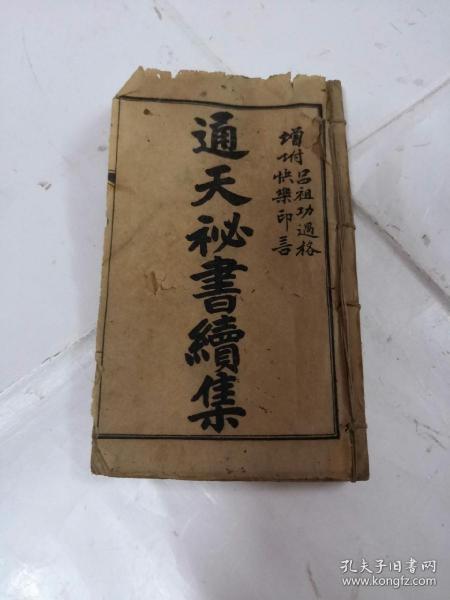 增附呂祖功過格
快樂印言
通天祕書續集
孔夫子旧书网
www.kongfz.com